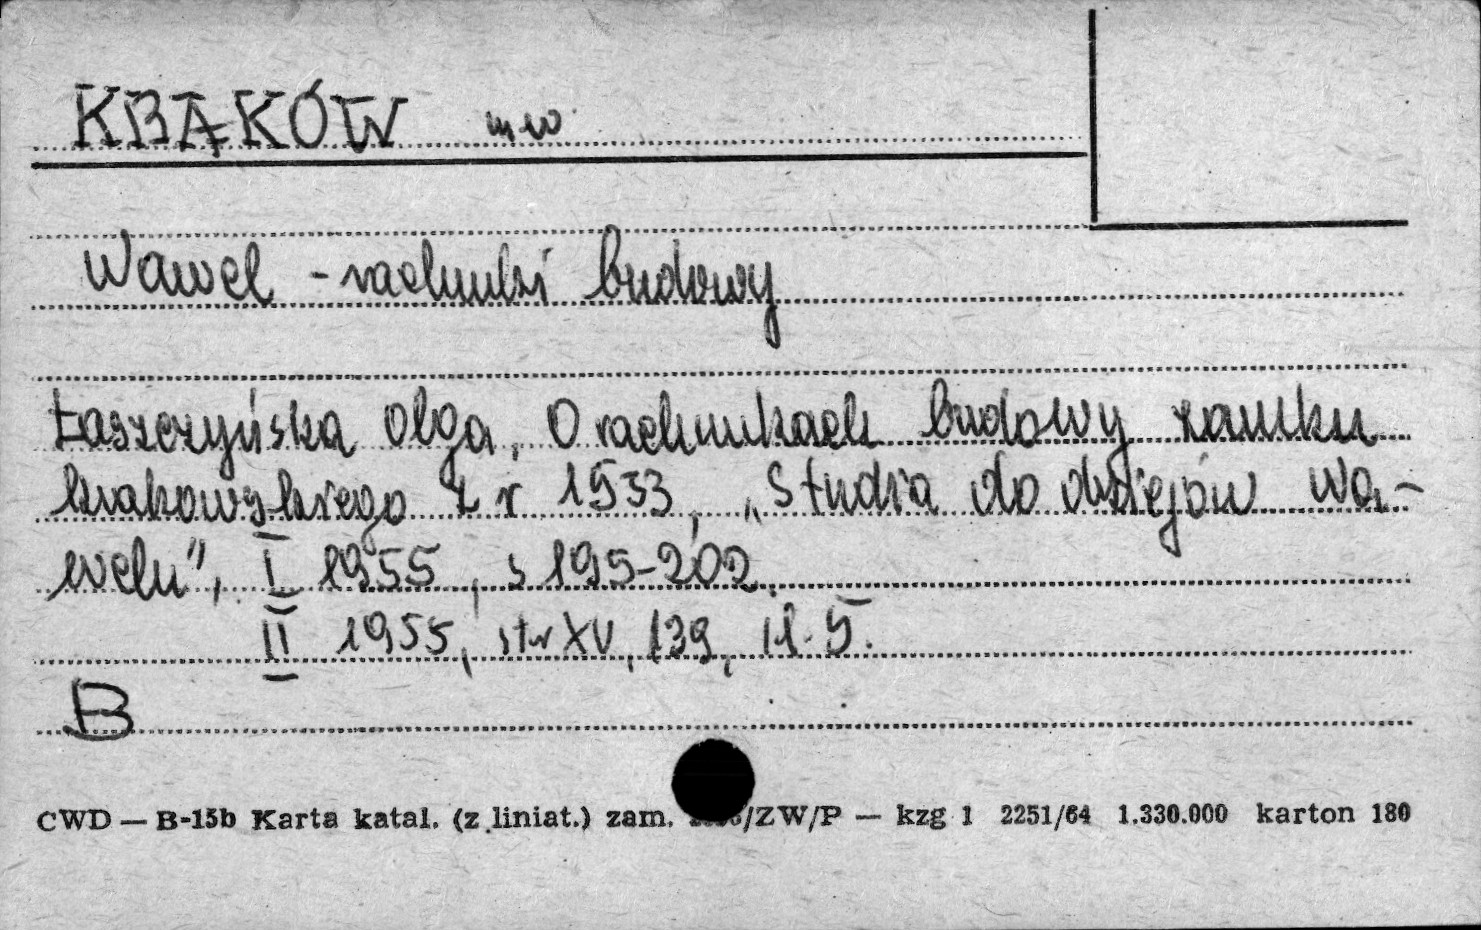 KRAKÓW mw
Wawel - rachunki budowy
Łaszczyńska Olga, O rachunkach budowy zamku
krakowskiego z r 1533, „Studia do dziejów Wa-
welu”, I 1955, s 195-202.
II 1955, str XV, 139, il. 5.
B
CWD — B-15b Karta katal. (z liniat.) zam. /ZW/P — kzg 1 2251/64 1.330.000 karton 180